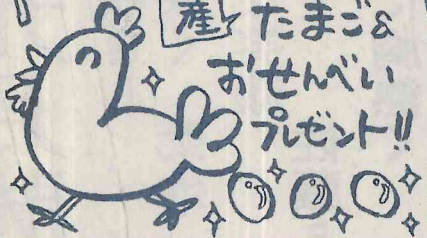 産 たまご&
おせんべい
プレゼント!!